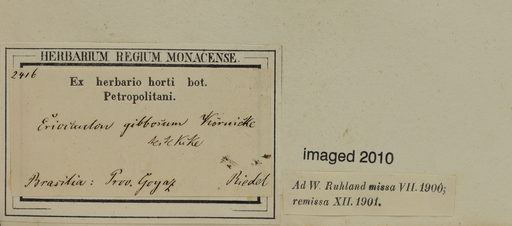 HERBARIUM REGIUM MONACENSE.
2416
Ex herbario horti bot.
Petropolitani.
Eriocaulon gibbosum Körnicke
Brasilia: Prov. Goyaz Riedel
imaged 2010
Ad W. Ruhland missa VII. 1900;
remissa XII. 1901.